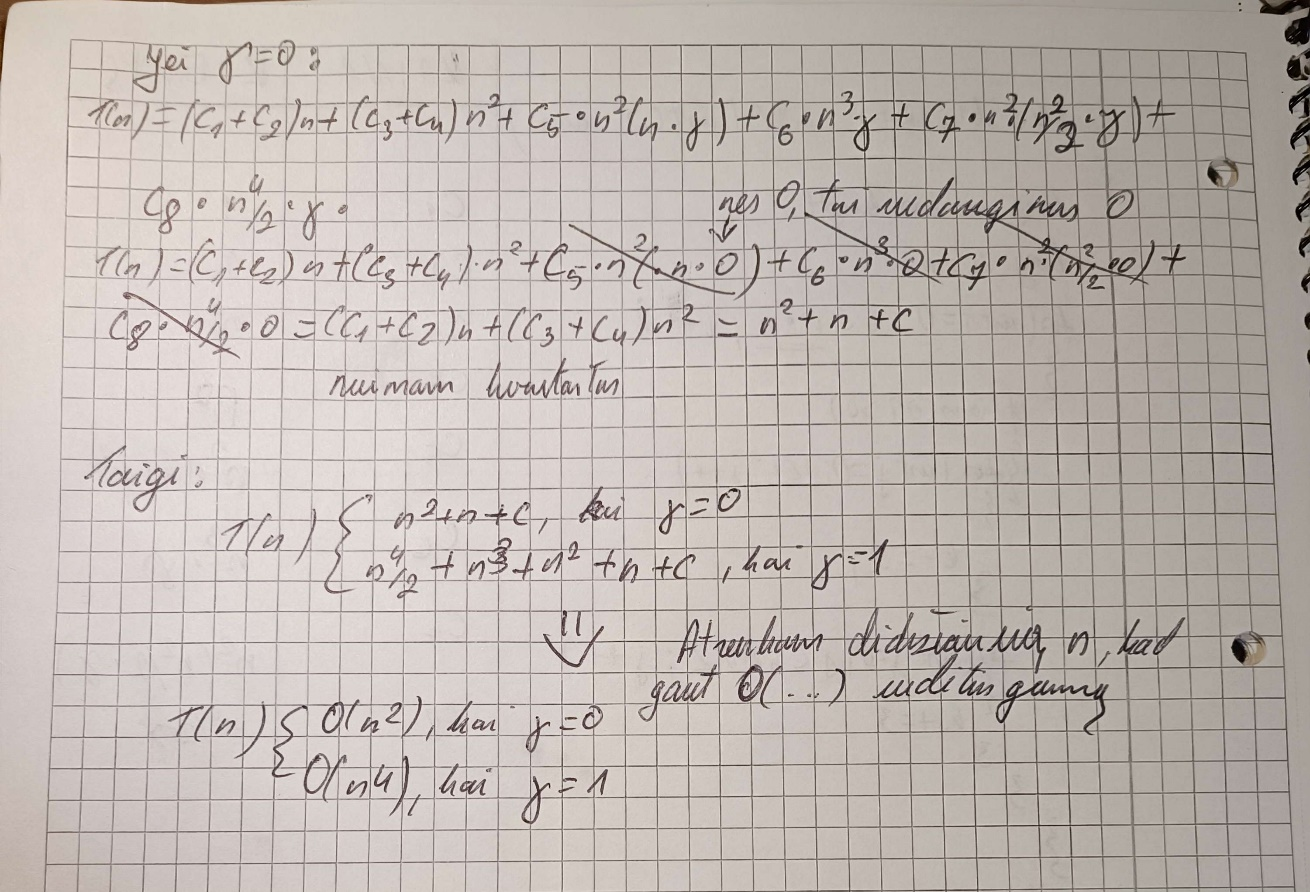 Jei γ=0:
T(n)=(C₁+C₂)n+(C₃+C₄)n²+C₅·n²(n·γ)+C₆·n³·γ+C₇·n²·(n²/2·γ)+
C₈·n⁴/2·γ.
nes 0, tai sudauginus 0
T(n)=(C₁+C₂)n+(C₃+C₄)·n²+C₅·n²(·n·0)+C₆·n³·0+C₇·n²·(n²/2·0)+
C₈·n⁴/2·0=(C₁+C₂)n+(C₃+C₄)n²=n²+n+C
nuimam konstantas
Taigi:
T(n) { n²+n+C, kai γ=0
n⁴/2+n³+n²+n+C, kai γ=1
⇓ Atrenkam didžiausią n, kad
gaut O(...) sudėtingumą
T(n) { O(n²), kai γ=0
O(n4), kai γ=1